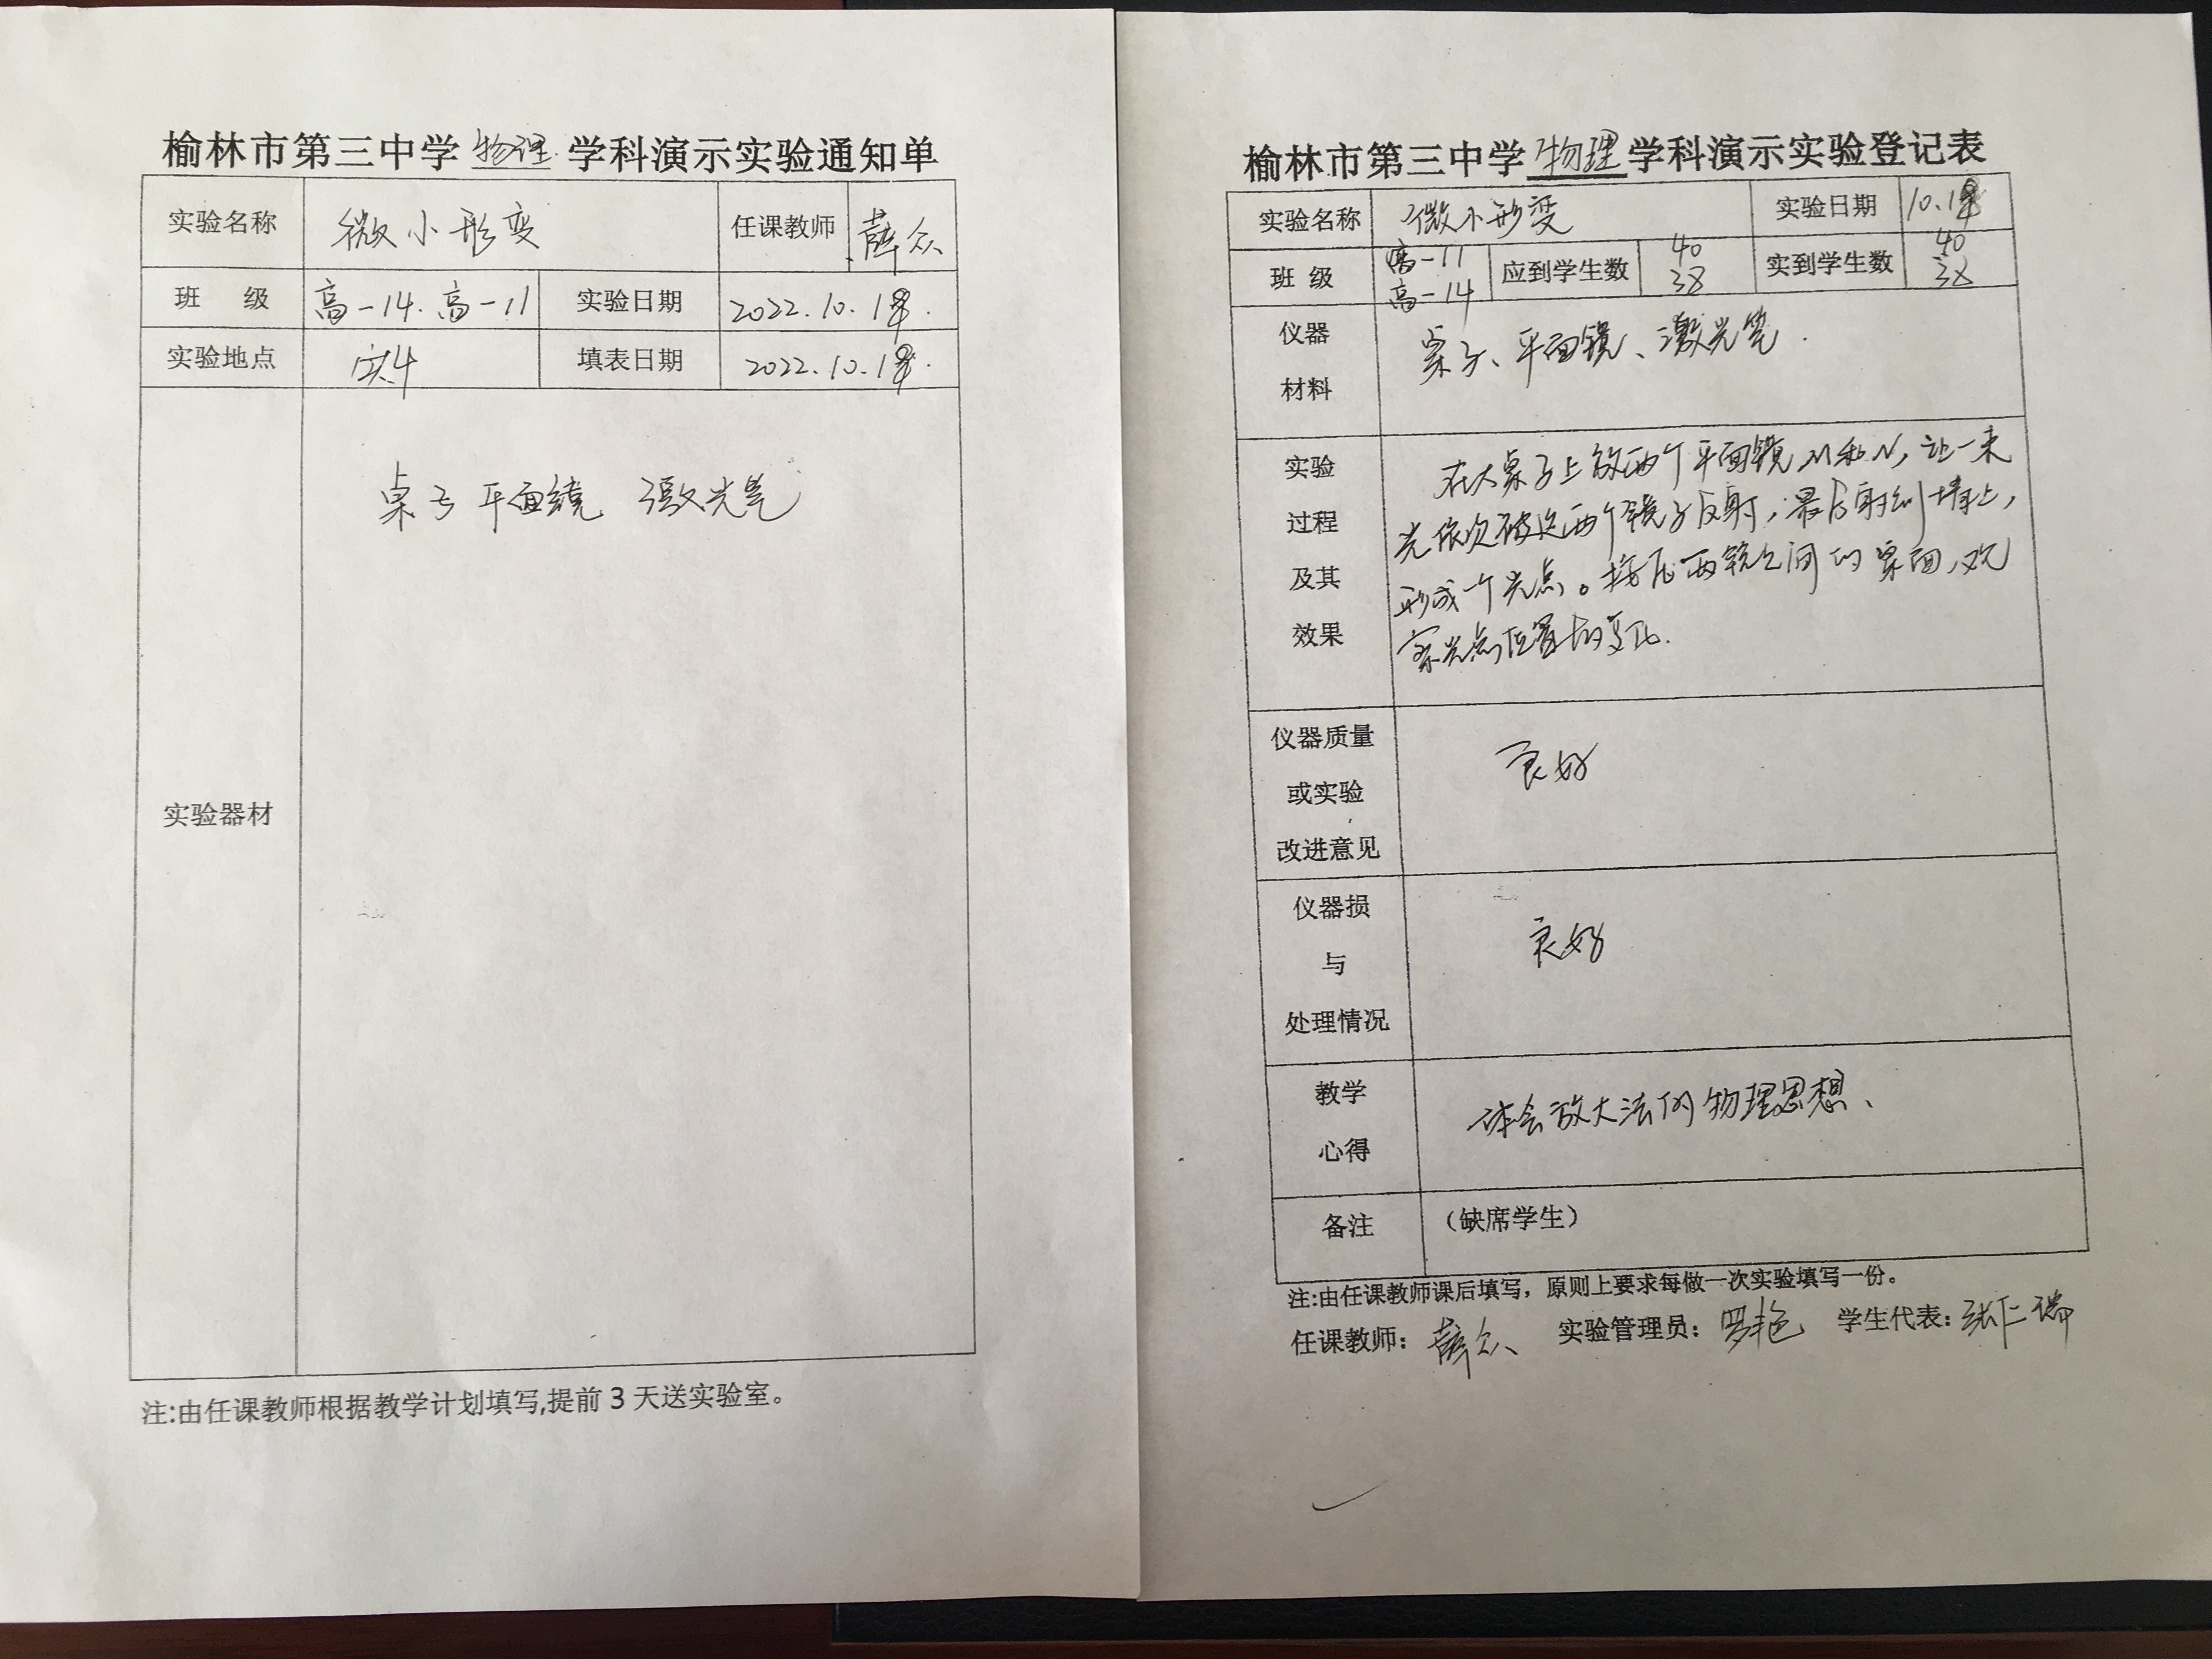 榆林市第三中学 物理 学科演示实验通知单
实验名称 微小形变 任课教师 薛众
班 级 高一14. 高一11 实验日期 2022.10.18.
实验地点 实4 填表日期 2022.10.18.
实验器材 桌子 平面镜 激光笔
注:由任课教师根据教学计划填写,提前3天送实验室。
榆林市第三中学 物理 学科演示实验登记表
实验名称 微小形变 实验日期 10.18
班 级 高一11 高一14 应到学生数 40 38 实到学生数 40 38
仪器
材料
桌子、平面镜、激光笔.
实验
过程
及其
效果
在大桌子上放两个平面镜M和N,让一束
光依次被这两个镜子反射,最后射到墙上,
形成一个光点。按压两镜之间的桌面,观
察光点位置的变化.
仪器质量
或实验
改进意见
良好
仪器损
与
处理情况
良好
教学
心得
体会放大法的物理思想、
备注 （缺席学生）
注:由任课教师课后填写，原则上要求每做一次实验填写一份。
任课教师: 薛众 实验管理员: 罗艳 学生代表: 张仁瑞